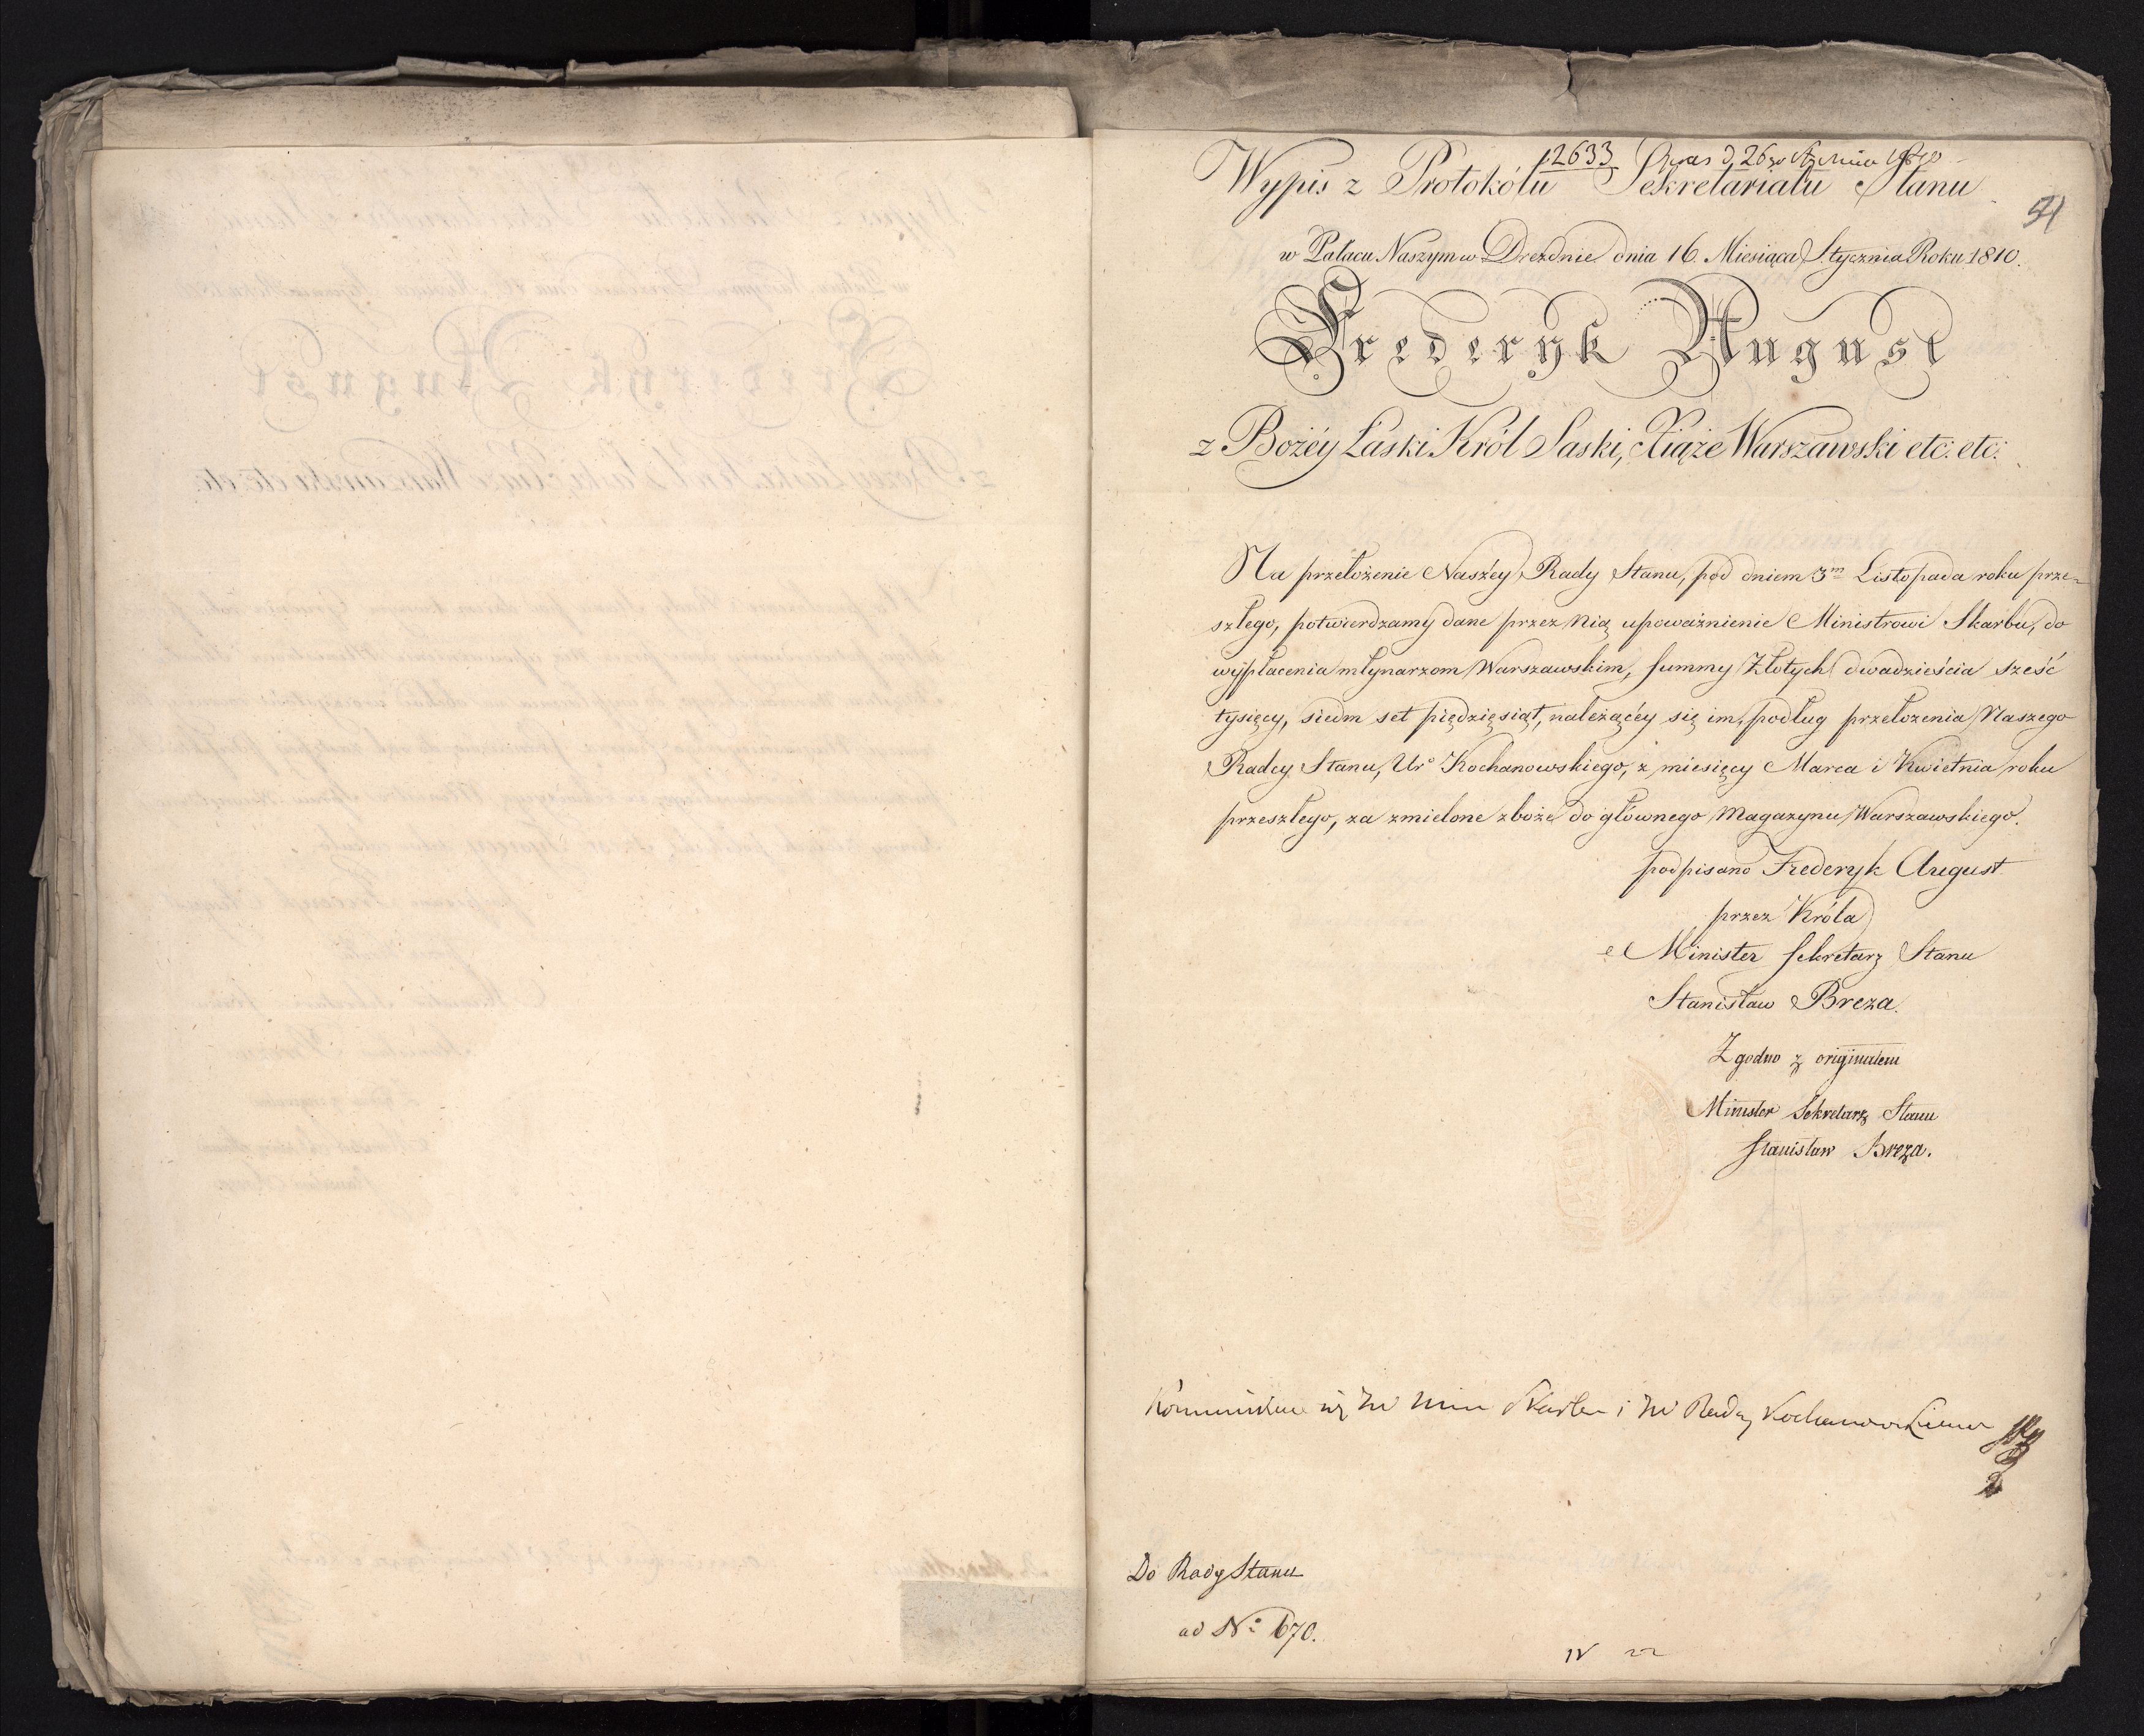 12633 d. 26go Stycznia 1810
Wypis z Protokółu Sekretariatu Stanu
54
w Pałacu Naszym w Dreznie dnia 16. Miesiąca Stycznia Roku 1810.
Frederyk August
z Bożéy Łaski Król Saski, Xiąże Warszawski etc: etc:
Na przełożenie Naszéy Rady Stanu, pod dniem 3m Listopada roku prze-
szłego, potwierdzamy dane przez Nią upoważnienie Ministrowi Skarbu, do
wypłacenia młynarzom Warszawskim, summy Złotych dwadzieścia sześć
tysięcy, siedm set piędzięsiąt, należącéy się im, podług przełożenia Naszego
Radcy Stanu, Uro Kochanowskiego, z miesięcy Marca i Kwietnia roku
przeszłego, za zmielone zboże do głównego Magazynu Warszawskiego.
podpisano Frederyk August
przez Króla
Minister Sekretarz Stanu
Stanisław Breza.
Zgodno z originałem
Minister Sekretarz Stanu
Stanisław Breza.
Skarbu i Kochanowskiemu
Do Rady Stanu
ad No 670.
IV